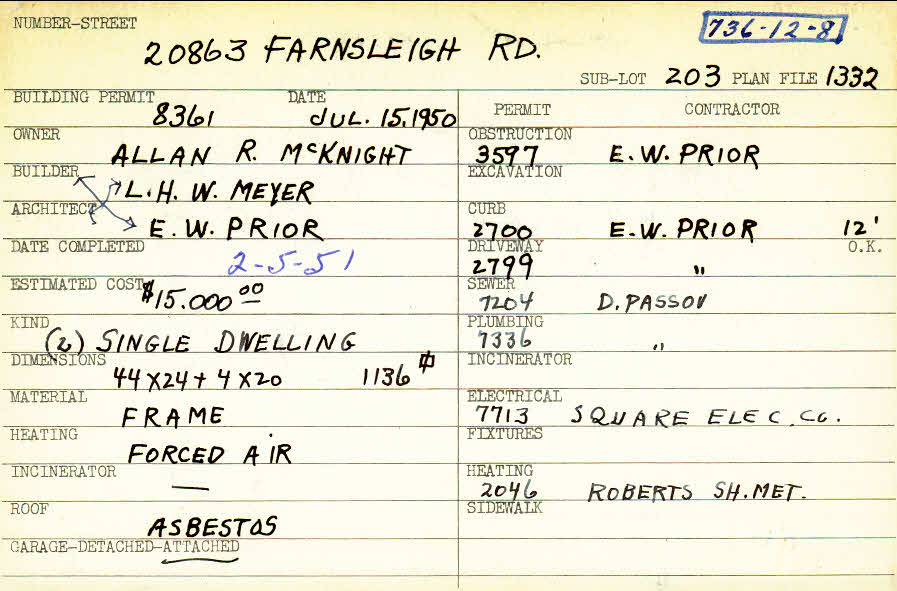 NUMBER-STREET
736-12-8
20863 FARNSLEIGH RD.
SUB-LOT 203 PLAN FILE 1332
BUILDING PERMIT DATE
8361 JUL. 15, 1950
OWNER
ALLAN R. McKNIGHT
BUILDER
L. H. W. MEYER
ARCHITECT
E. W. PRIOR
DATE COMPLETED
2-5-51
ESTIMATED COST
$15.000 00
KIND
(2) SINGLE DWELLING
DIMENSIONS
44 X 24 + 4 X 20 1136 ⏍
MATERIAL
FRAME
HEATING
FORCED AIR
INCINERATOR
—
ROOF
ASBESTOS
GARAGE-DETACHED-ATTACHED
PERMIT CONTRACTOR
OBSTRUCTION
3597 E. W. PRIOR
EXCAVATION
CURB
2700 E. W. PRIOR 12'
DRIVEWAY O.K.
2799 "
SEWER
7204 D. PASSOV
PLUMBING
7336 "
INCINERATOR
ELECTRICAL
7713 SQUARE ELEC. CO.
FIXTURES
HEATING
2046 ROBERTS SH. MET.
SIDEWALK